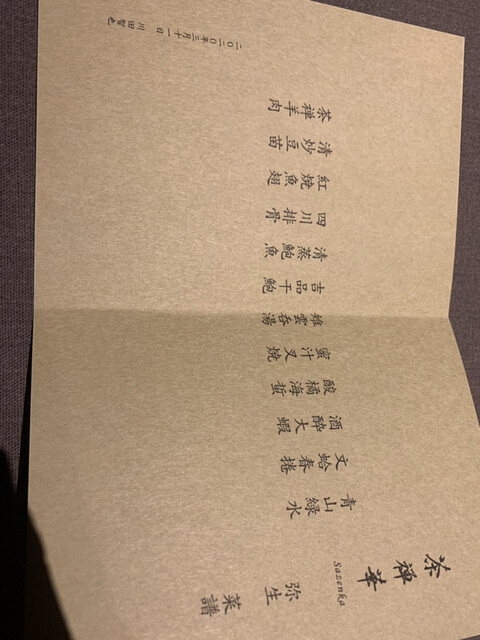 茶禅華
Sazenka
弥生 菜譜
青山緑水
文蛤春捲
酒酔大蝦
酸橘海蜇
蜜汁叉焼
雉雲呑湯
吉品干鮑
清蒸鮑魚
四川排骨
紅焼魚翅
清炒豆苗
茶禅羊肉
二〇二〇年三月十一日
川田智也